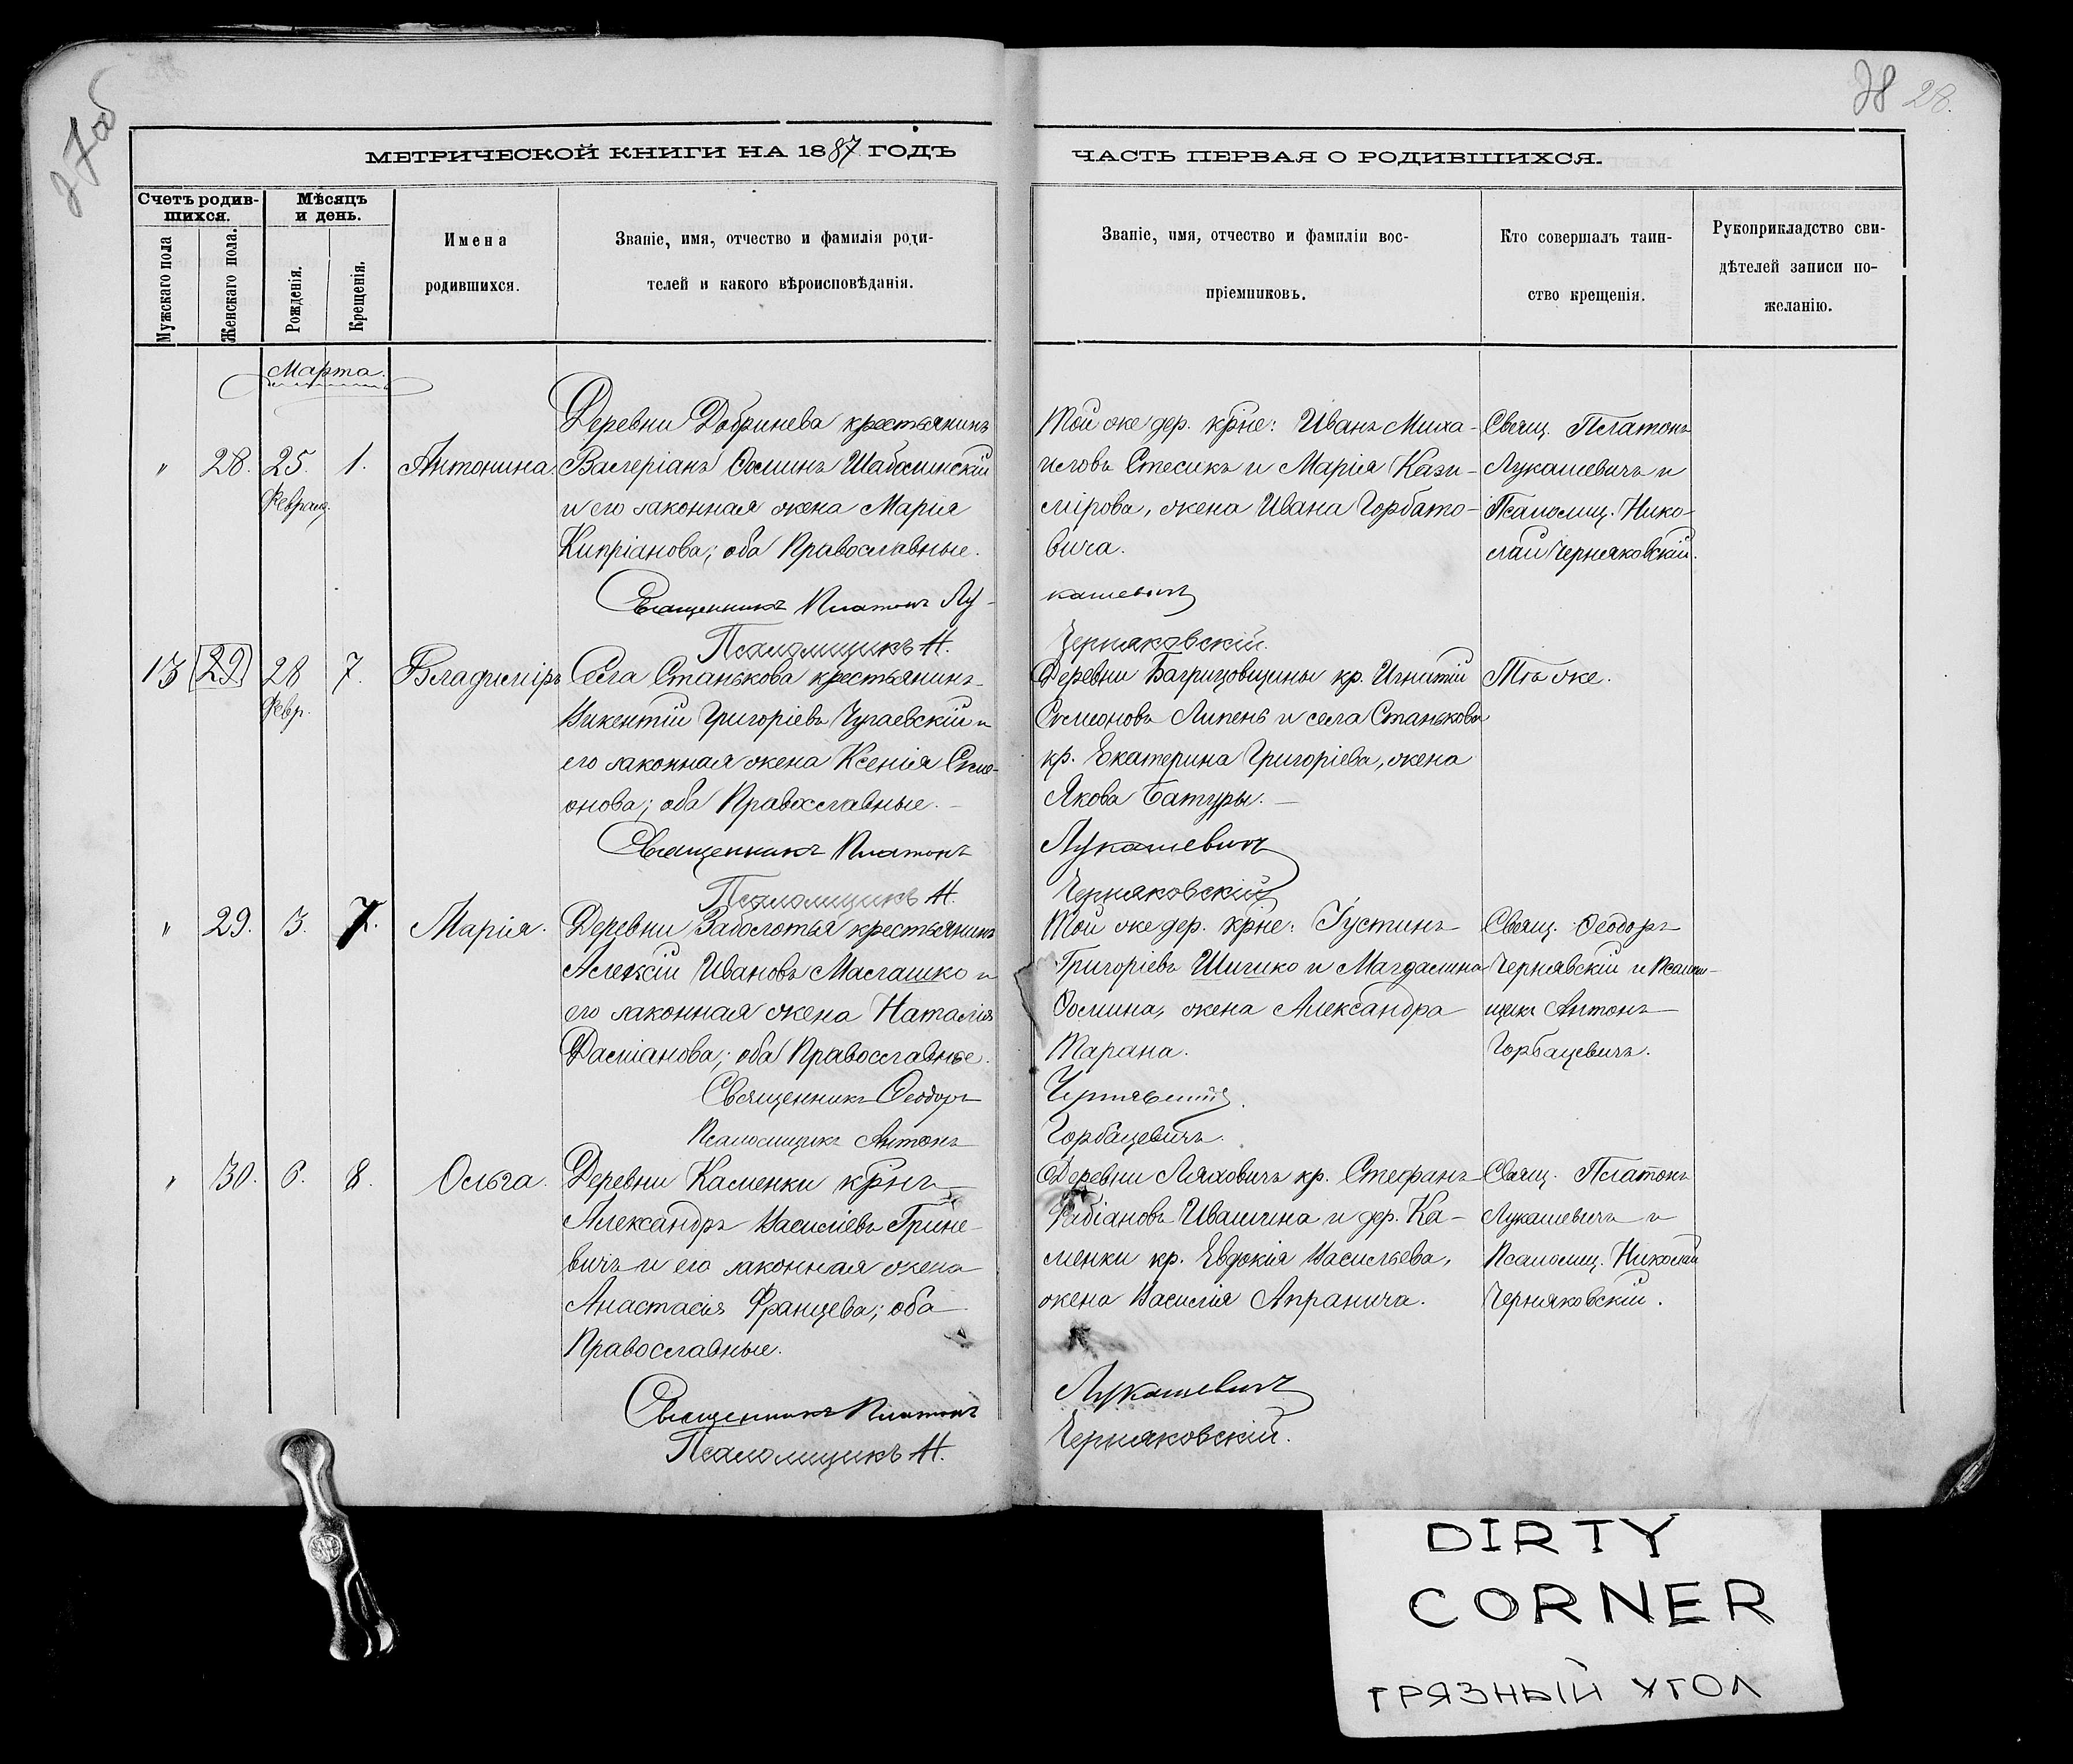 27об
28 28.
МЕТРИЧЕСКОЙ КНИГИ НА 1887 ГОДЪ
ЧАСТЬ ПЕРВАЯ О РОДИВШИХСЯ.
Счетъ родив-
шихся.
Мужскаго пола
Женскаго пола.
Мѣсяцъ
и день.
Рожденія.
Крещенія.
Имена
родившихся.
Званіе, имя, отчество и фамилія роди-
телей и какого вѣроисповѣданія.
Званіе, имя, отчество и фамиліи вос-
пріемниковъ.
Кто совершалъ таин-
ство крещенія.
Рукоприкладство сви-
дѣтелей записи по-
желанію.
Марта.
" 28. 25. 1. Антонина
Февраля.
Деревни Добринева крестьянинъ
Валеріанъ Ѳоминъ Шаблинскій
и его законная жена Марія
Кипріанова; оба Православные.
Священникъ Платонъ Лу-
Псаломщикъ Н.
Той же дер. крне: Иванъ Миха-
иловъ Стесикъ и Марія Кази-
мірова, жена Ивана Горбато-
вича.
кашевичъ
Черняковскій.
Свящ. Платонъ
Лукашевичъ и
Псаломщ. Нико-
лай Черняковскій.
13 29 28 7. Владиміръ
Февр.
Села Станькова крестьянинъ
Викентій Григоріевъ Чугаевскій и
его законная жена Ксенія Симе-
онова; оба Православные.
Священникъ Платонъ
Псаломщикъ Н.
Деревни Багрицовщины кр. Игнатій
Симеоновъ Липень и села Станькова
кр. Екатерина Григоріева, жена
Якова Батуры.
Лукашевичъ
Черняковскій
Тѣ же.
" 29. 3. 7. Марія.
Деревни Заболотья крестьянинъ
Алексій Ивановъ Малашко и
его законная жена Наталія
Даміанова; оба Православные.
Священникъ Ѳеодоръ
Псаломщикъ Антонъ
Той же дер. крне: Іустинъ
Григоріевъ Шишко и Магдалина
Ѳомина, жена Александра
Тарана.
Чернявскій.
Горбацевичъ.
Свящ. Ѳеодоръ
Чернявскій и Псалом-
щикъ Антонъ
Горбацевичъ.
" 30. 6. 8. Ольга.
Деревни Каменки крнъ
Александръ Василіевъ Грине-
вичъ и его законная жена
Анастасія Францева; оба
Православные.
Священникъ Платонъ
Псаломщикъ Н.
Деревни Ляховичъ кр. Стефанъ
Фабіановъ Ивашина и дер. Ка-
менки кр. Евдокія Васильева,
жена Василія Апранича.
Лукашевичъ
Черняковскій.
Свящ. Платонъ
Лукашевичъ и
Псаломщ. Николай
Черняковскій.
DIRTY
CORNER
ГРЯЗНЫЙ УГОЛ